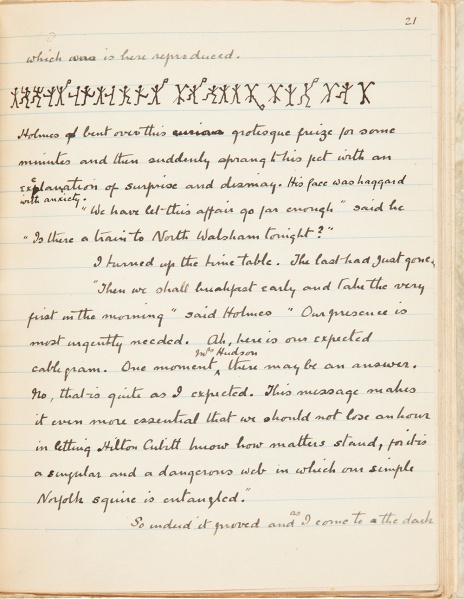 21
which was is here reproduced.
Holmes bent over this curious grotesque frieze for some
minutes and then suddenly sprang to his feet with an
exclamation of surprise and dismay. His face was haggard
with anxiety.
"We have let this affair go far enough" said he
"Is there a train to North Walsham tonight?"
I turned up the time table. The last had just gone.
"Then we shall breakfast early and take the very
first in the morning" said Holmes "Our presence is
most urgently needed. Ah, here is our expected
cablegram. One moment Mrs Hudson, there may be an answer.
No, that is quite as I expected. This message makes
it even more essential that we should not lose an hour
in letting Hilton Cubitt know how matters stand, for it is
a singular and a dangerous web in which our simple
Norfolk squire is entangled."
So indeed it proved and as I come to the dark